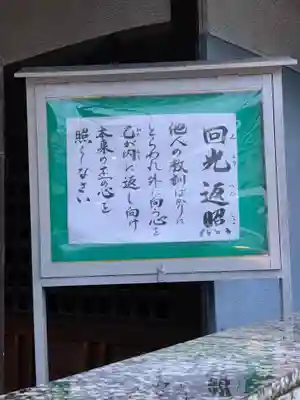 回光返照
他人の教訓ばかりに
とらわれ外に向う心を
己が内に返し向け
本来の玉の心を
照らしなさい